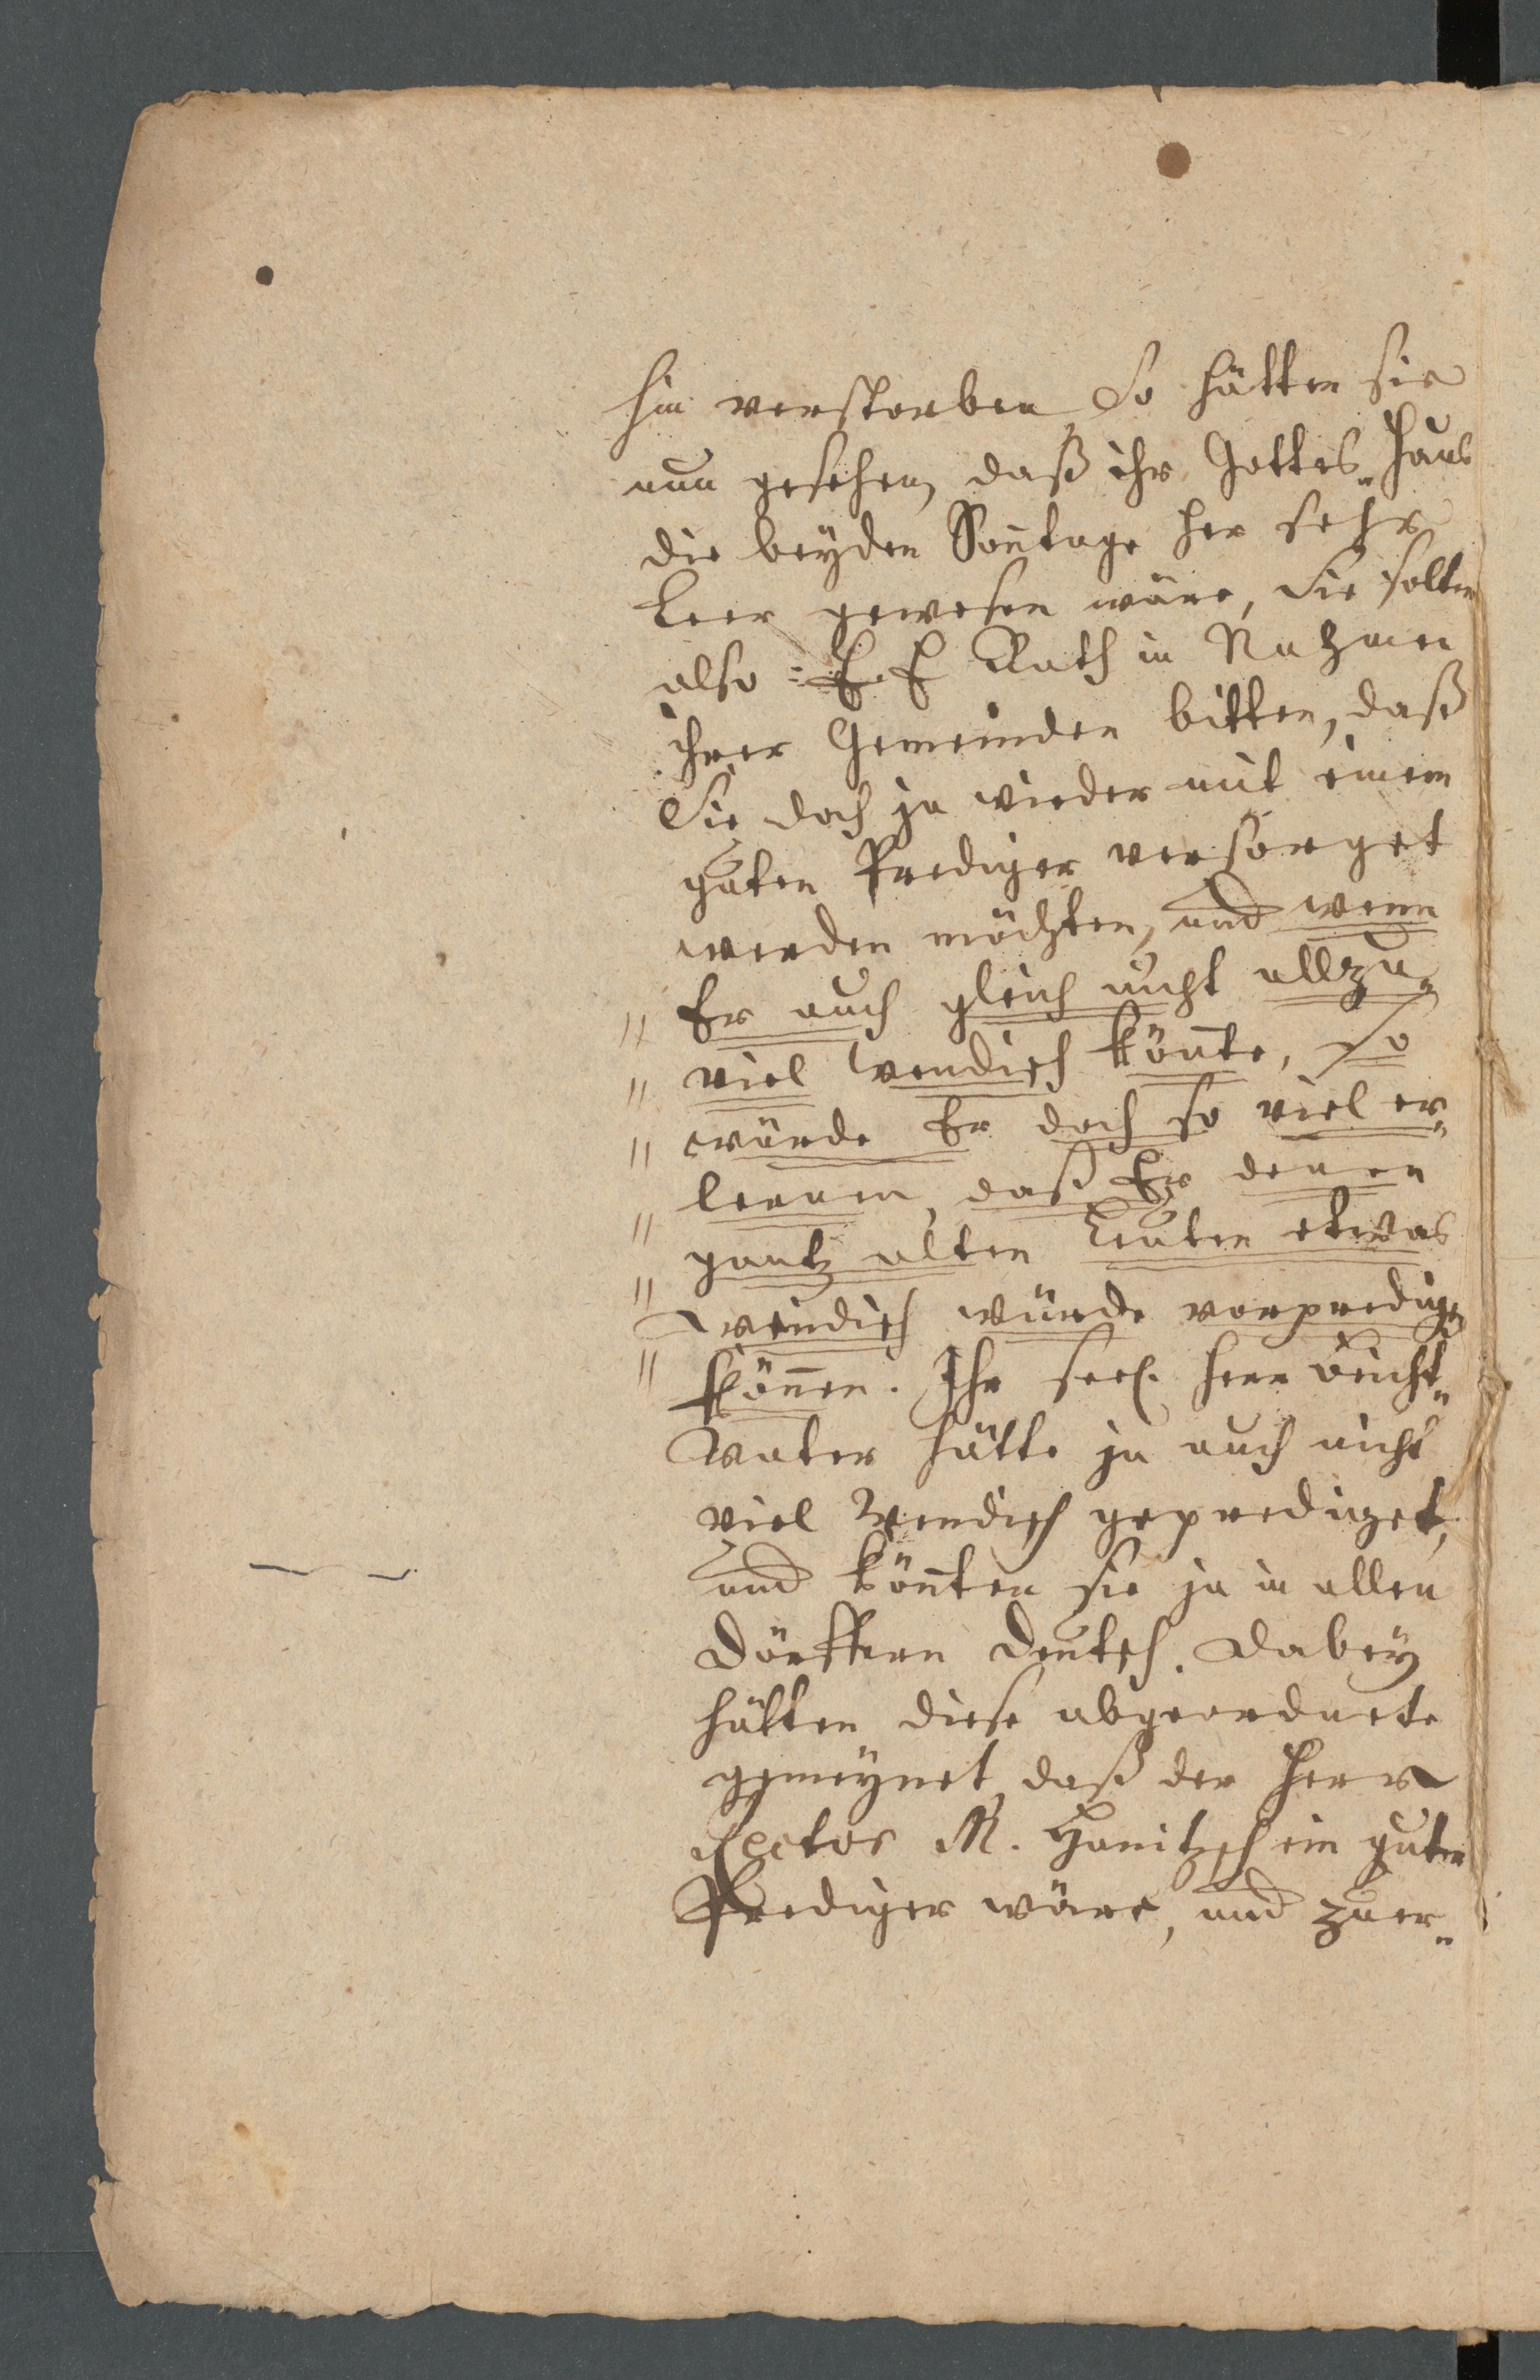 hin verstorben, So hätten sie
nun gesehen, daß ihr Gottes-Hauß
die beyden Sontage her sehr
Leer gewesen wäre, Sie solten
also E. E Rath in Nahmen
ihrer Gemeinden bitten, daß
Sie doch ja wieder mit einem
guten Prediger versorget
werden möchten, und wenn
" Er auch gleich nicht allzu-
" viel Wendisch könte, so
" würde Er doch so viel er-
lernen, daß Er denen
" gantz alten Leuten etwas
" wendisch würde vorpredigen
" können. Ihr seel. Herr Beicht-
Vater hätte ja auch nicht
viel Wendisch geprediget,
und könten sie ja in allen
Dörffern Deutsch. Dabey
hätten diese abgeordnete
gemeynet, daß der Herr
Rector M. Hanitzsch ein guter
Prediger wäre, und zuer-